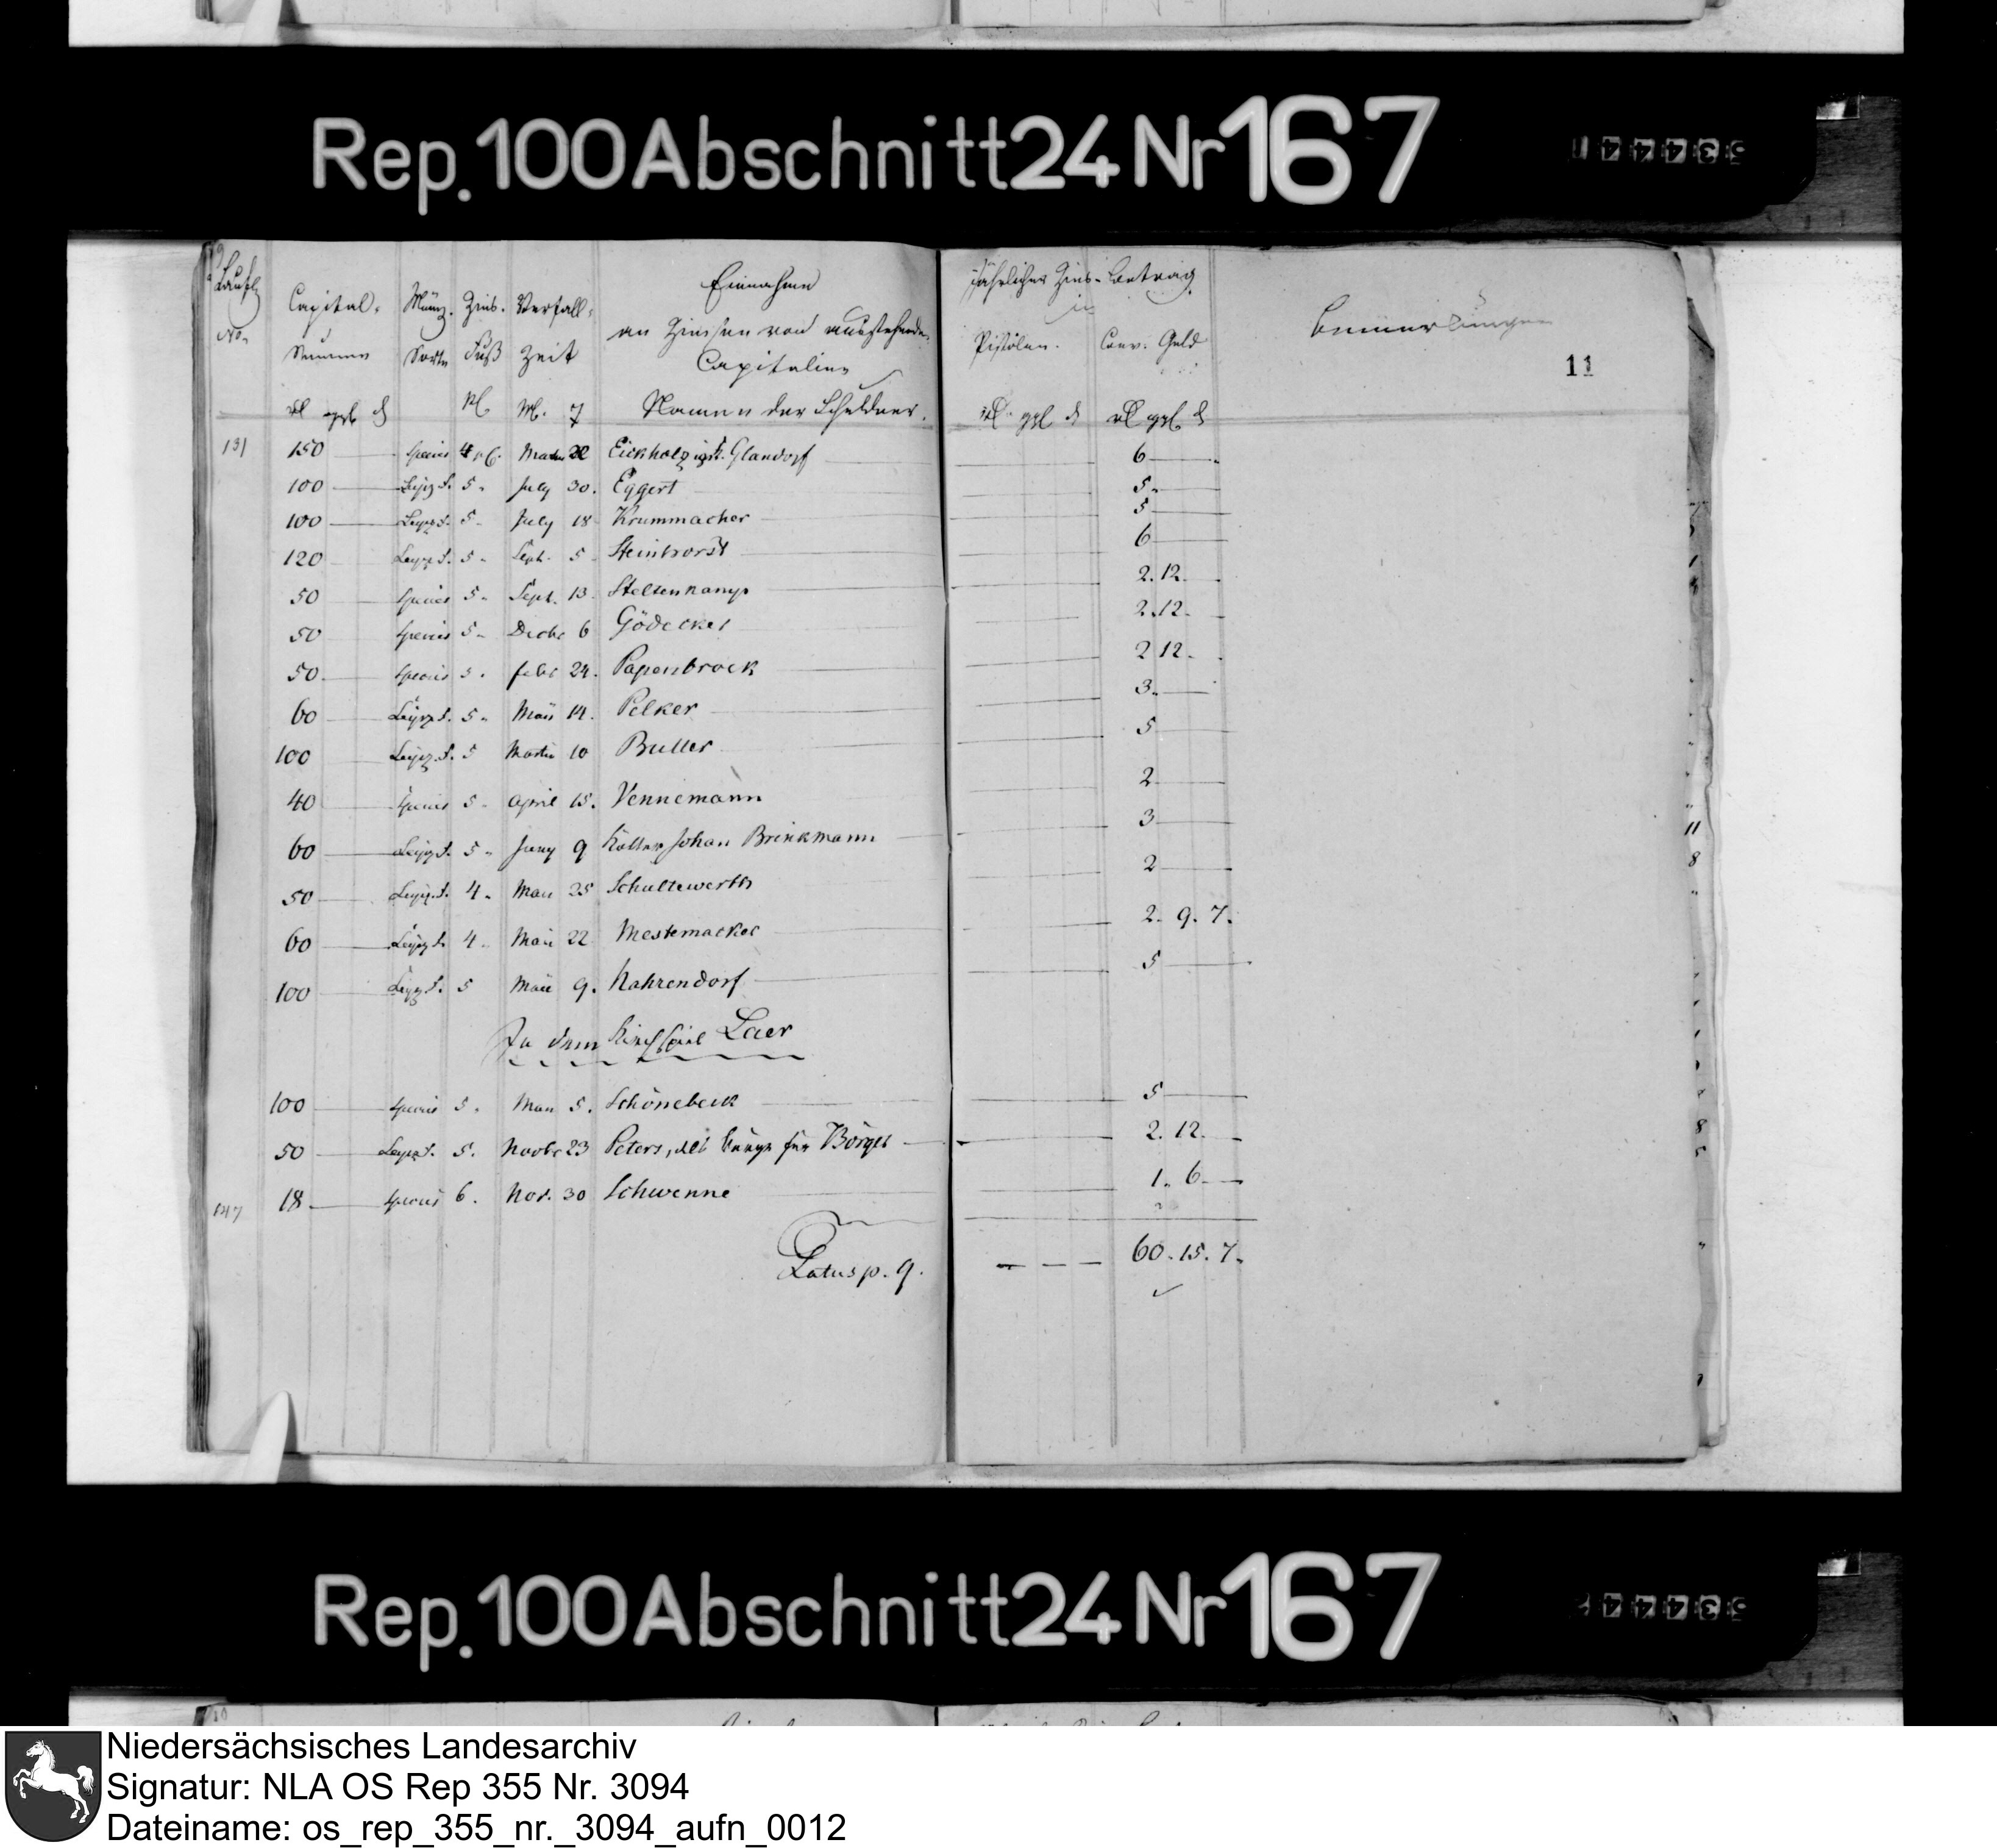 Rep. 100 Abschnitt 24 Nr 167
9
Laufd. Capital- Münz- Zins- Verfall- Einnahme jährlicher Zins-Betrag
No. Summe Sorte Fuß Zeit an Zinsen von ausstehenden in Bemerkungen
Capitalien Pistolen. Conv: Geld
11
M. Namen der Schuldner.
131 150 Species 4 22 Eickholz Glandorf 6
100 Leipz. 5 July 30. Eggert 5
100 Leipz. 5 July 18 Krummacher 5
120 Leipz. 5 Sept. 5 Steinhorst 6
50 Species 5 Sept. 13 Steltenkamp 2. 12.
50 Species 5 Decbr 6 Gödecker 2. 12.
50 Species 5 Febr 24. Papenbrock 2 12.
60 Leipz. 5 Mai 14. Pelker 3.
100 Leipz. 5 Martii 10 Buller 5
40 Species 5 April 15. Vennemann 2
60 Leipz. 5 Juny 9 Johan Brinkmann 3
50 Leipz. 4 Mai 25 Schultewerth 2
60 Leipz. 4 Mai 22 Mestemacher 2. 9. 7.
100 Leipz. 5 Mai 9. Nahrendorf 5
In dem Kirchspiel Laer
100 Species 5 Mai 5. Schönebeck 5
50 Leipz. 5. Novbr 23 Peters, als Bürge für Börger 2. 12.
147 18 Species 6. Nov. 30 Schwenne 1. 6.
Latus p. 9. 60. 15. 7.
Rep. 100 Abschnitt 24 Nr 167
10
Niedersächsisches Landesarchiv
Signatur: NLA OS Rep 355 Nr. 3094
Dateiname: os_rep_355_nr._3094_aufn_0012